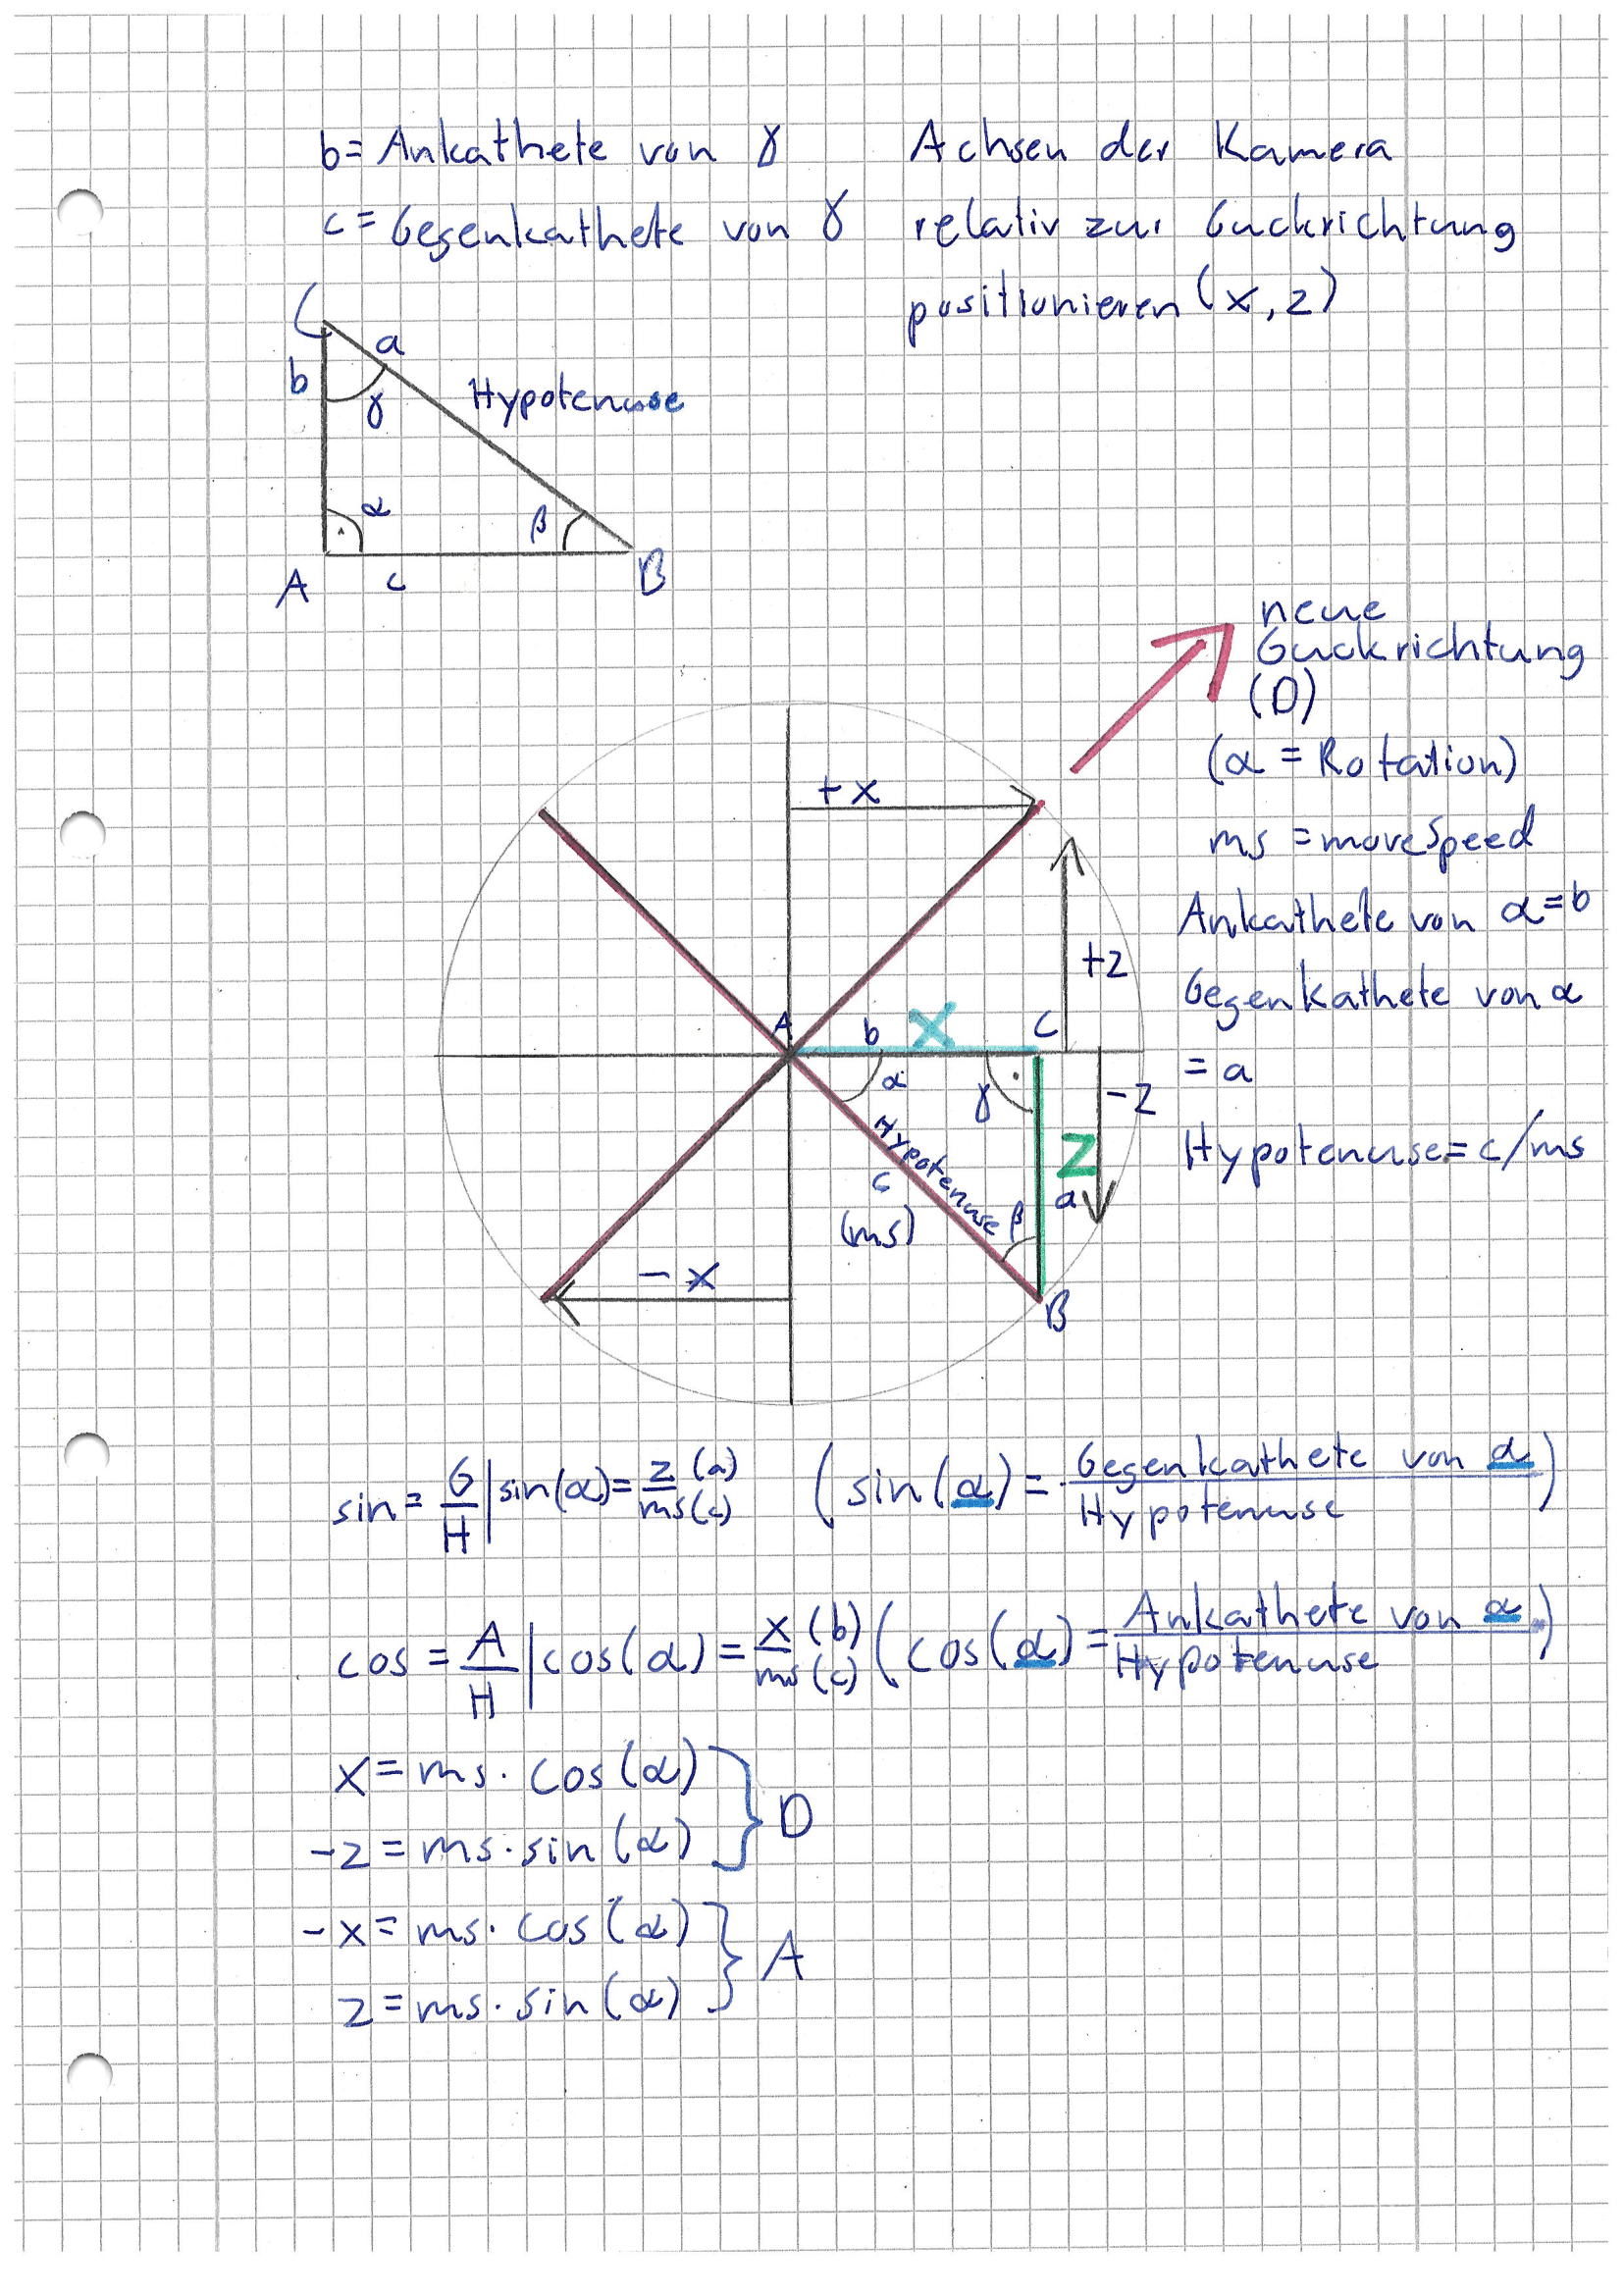 b= Ankathete von γ
c= Gegenkathete von γ
Achsen der Kamera
relativ zur Guckrichtung
positionieren (x,z)
C
a
b
γ
Hypotenuse
α
β
A
c
B
neue
Guckrichtung
(D)
(α = Rotation)
ms = movespeed
Ankathete von α=b
Gegenkathete von α
= a
Hypotenuse= c/ms
+x
+z
A
b
X
C
α
γ
-z
Hypotenuse
c
(ms)
β
Z
a
-x
B
sin= G/H | sin(α)= z (a)/ms(c) (sin(α)= Gegenkathete von α/Hypotenuse)
cos = A/H | cos(α)= x (b)/ms (c) (cos(α)= Ankathete von α/Hypotenuse)
x= ms· cos(α)
-z= ms·sin(α)
} D
-x= ms· cos(α)
z= ms· sin(α)
} A